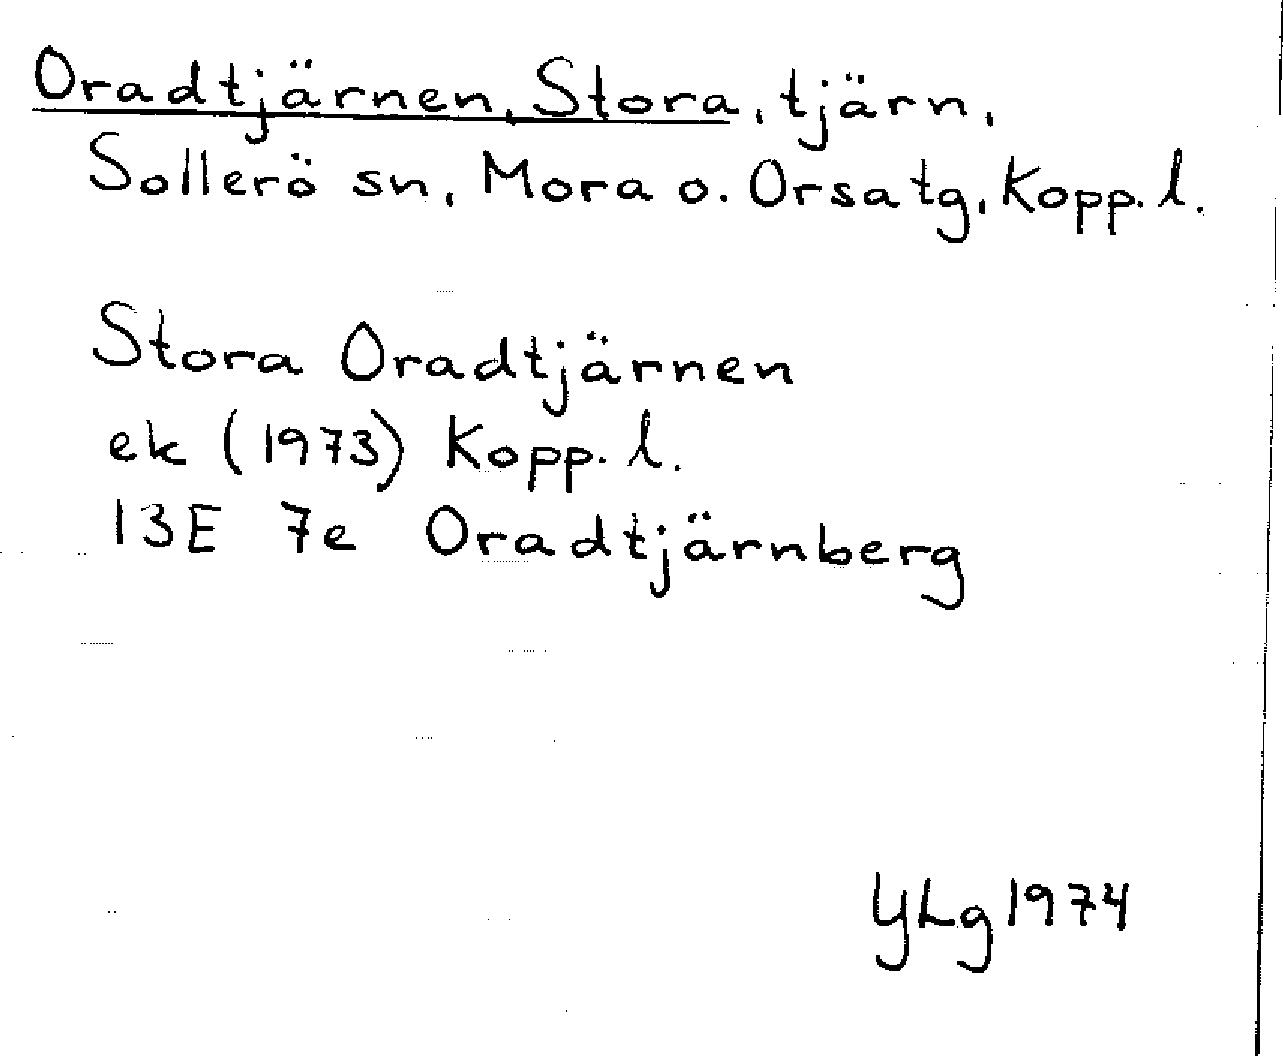 Oradtjärnen, Stora, tjärn,
Sollerö sn, Mora o. Orsa tg, Kopp. l.
Stora Oradtjärnen
ek (1973) Kopp. l.
13E 7e Oradtjärnberg
YLg 1974